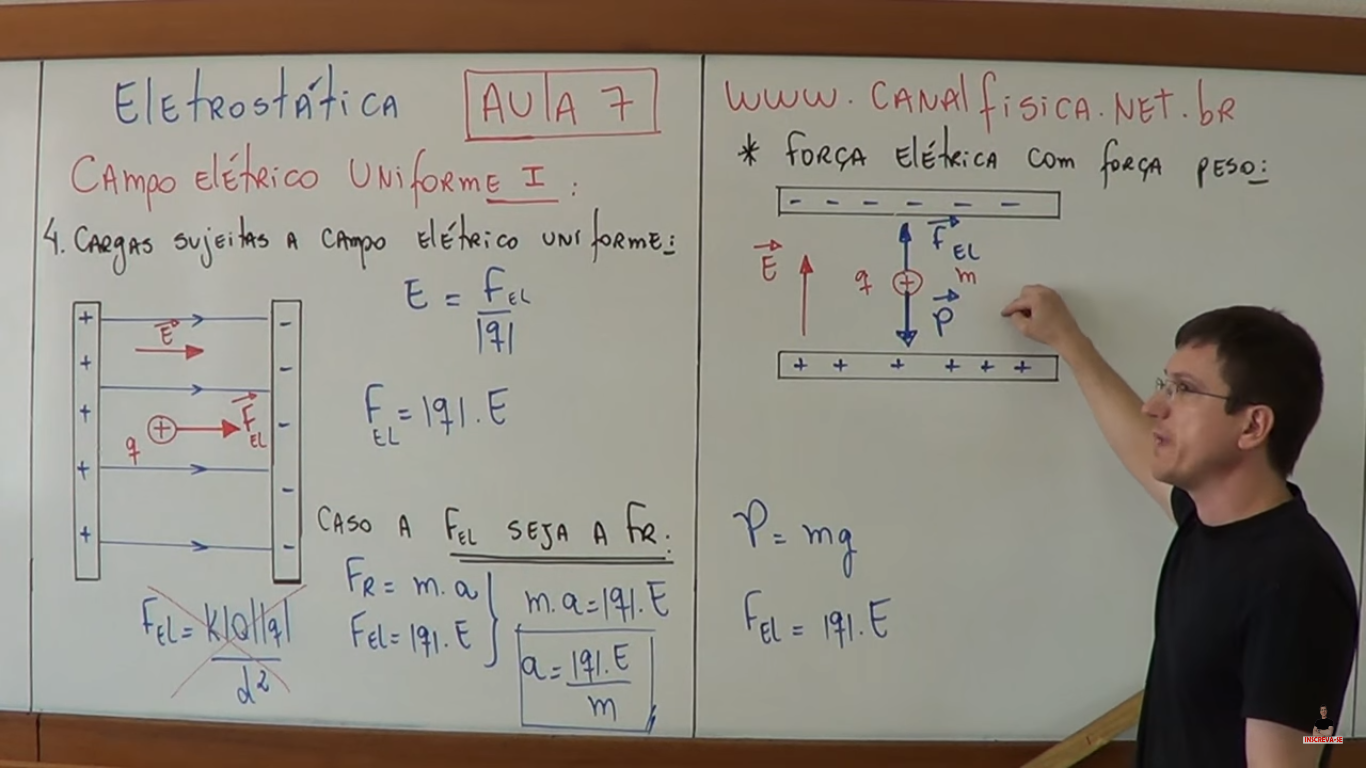 Eletrostática
AULA 7
Campo elétrico uniforme I:
4. Cargas sujeitas a campo elétrico uniforme:
E = F_EL / |q|
F_EL = |q|.E
+ + + + +
E
q + F_EL
- - - - - -
F_EL = K|Q||q| / d²
Caso a F_EL seja a FR:
FR = m.a
F_EL = |q|.E
m.a = |q|.E
a = |q|.E / m
www.canalfisica.net.br
* Força elétrica com força peso:
- - - - - -
F_EL
E
q + m
P
+ + + + + +
P = mg
F_EL = |q|.E
INSCREVA-SE